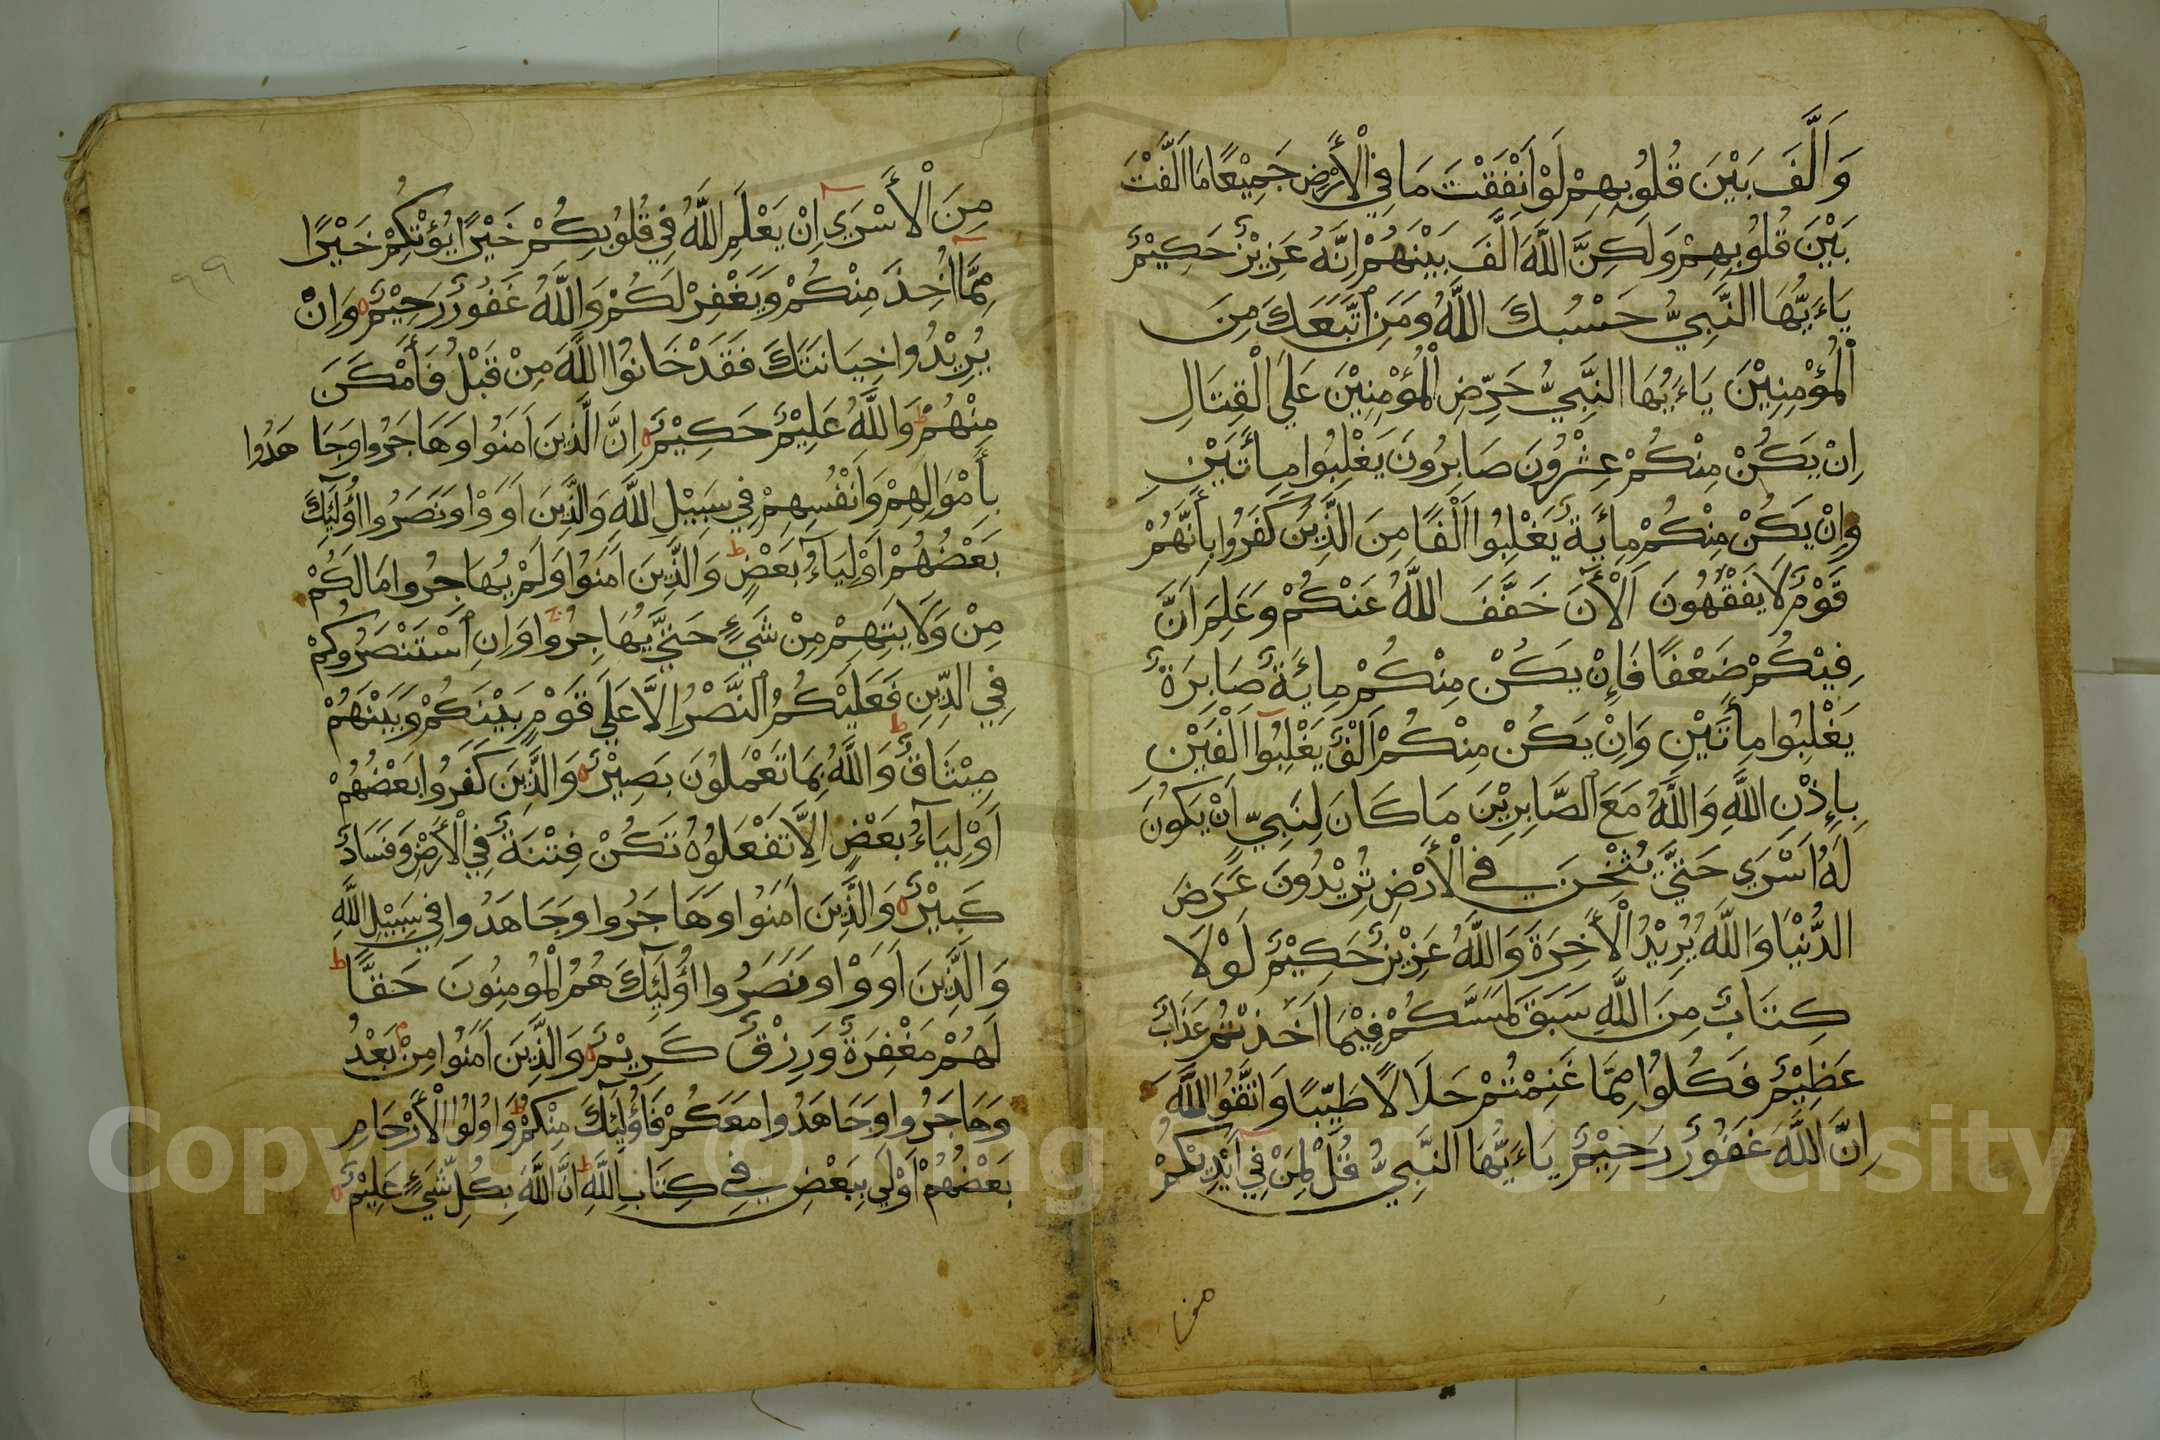 وَاَلَّفَ بَيْنَ قُلُوْبِهِمْ لَوْ اَنْفَقْتَ مَا فِي الْأَرْضِ جَمِيْعًا مَا اَلَّفْتَ
بَيْنَ قُلُوْبِهِمْ وَلَكِنَّ اللَّهَ اَلَّفَ بَيْنَهُمْ اِنَّهُ عَزِيْزٌ حَكِيْمٌ
يَاءَيُّهَا النَّبِيُّ حَسْبُكَ اللَّهُ وَمَنِ اتَّبَعَكَ مِنَ
الْمُؤْمِنِيْنَ يَاءَيُّهَا النَّبِيُّ حَرِّضِ الْمُؤْمِنِيْنَ عَلَى الْقِتَالِ
اِنْ يَكُنْ مِنْكُمْ عِشْرُوْنَ صَابِرُوْنَ يَغْلِبُوا مِأَتَيْنِ
وَاِنْ يَكُنْ مِنْكُمْ مِائَةٌ يَغْلِبُوا اَلْفًا مِنَ الَّذِيْنَ كَفَرُوْا بِأَنَّهُمْ
قَوْمٌ لَا يَفْقَهُوْنَ اَلْأَنَ خَفَّفَ اللَّهُ عَنْكُمْ وَعَلِمَ اَنَّ
فِيْكُمْ ضَعْفًا فَاِنْ يَكُنْ مِنْكُمْ مِائَةٌ صَابِرَةٌ
يَغْلِبُوا مِأَتَيْنِ وَاِنْ يَكُنْ مِنْكُمْ اَلْفٌ يَغْلِبُوا اَلْفَيْنِ
بِإِذْنِ اللَّهِ وَاللَّهُ مَعَ الصَّابِرِيْنَ مَا كَانَ لِنَبِيٍّ اَنْ يَكُوْنَ
لَهُ اَسْرَى حَتَّى يُثْخِنَ فِي الْأَرْضِ تُرِيْدُوْنَ عَرَضَ
الدُّنْيَا وَاللَّهُ يُرِيْدُ الْأَخِرَةَ وَاللَّهُ عَزِيْزٌ حَكِيْمٌ لَوْلَا
كِتَابٌ مِنَ اللَّهِ سَبَقَ لَمَسَّكُمْ فِيْمَا اَخَذْتُمْ عَذَابٌ
عَظِيْمٌ فَكُلُوْا مِمَّا غَنِمْتُمْ حَلَالًا طَيِّبًا وَاتَّقُوا اللَّهَ
اِنَّ اللَّهَ غَفُوْرٌ رَحِيْمٌ يَاءَيُّهَا النَّبِيُّ قُلْ لِمَنْ فِي اَيْدِيْكُمْ
من
مِنَ الْأَسْرَى اِنْ يَعْلَمِ اللَّهُ فِي قُلُوْبِكُمْ خَيْرًا يُؤْتِكُمْ خَيْرًا
مِمَّا اُخِذَ مِنْكُمْ وَيَغْفِرْ لَكُمْ وَاللَّهُ غَفُوْرٌ رَحِيْمٌ ه وَاِنْ
يُرِيْدُوا خِيَانَتَكَ فَقَدْ خَانُوا اللَّهَ مِنْ قَبْلُ فَأَمْكَنَ
مِنْهُمْ ط وَاللَّهُ عَلِيْمٌ حَكِيْمٌ ه اِنَّ الَّذِيْنَ اَمَنُوْا وَهَاجَرُوا وَجَاهَدُوا
بِأَمْوَالِهِمْ وَاَنْفُسِهِمْ فِي سَبِيْلِ اللَّهِ وَالَّذِيْنَ اَوَوْا وَنَصَرُوا اُولَئِكَ
بَعْضُهُمْ اَوْلِيَاءُ بَعْضٍ ط وَالَّذِيْنَ اَمَنُوْا وَلَمْ يُهَاجِرُوا مَا لَكُمْ
مِنْ وَلَايَتِهِمْ مِنْ شَيْءٍ حَتَّى يُهَاجِرُوا ج وَاِنِ اسْتَنْصَرُوْكُمْ
فِي الدِّيْنِ فَعَلَيْكُمُ النَّصْرُ اِلَّا عَلَى قَوْمٍ بَيْنَكُمْ وَبَيْنَهُمْ
مِيْثَاقٌ ط وَاللَّهُ بِمَا تَعْمَلُوْنَ بَصِيْرٌ ه وَالَّذِيْنَ كَفَرُوْا بَعْضُهُمْ
اَوْلِيَاءُ بَعْضٍ اِلَّا تَفْعَلُوْهُ تَكُنْ فِتْنَةٌ فِي الْأَرْضِ وَفَسَادٌ
كَبِيْرٌ ه وَالَّذِيْنَ اَمَنُوْا وَهَاجَرُوا وَجَاهَدُوا فِي سَبِيْلِ اللَّهِ
وَالَّذِيْنَ اَوَوْا وَنَصَرُوا اُولَئِكَ هُمُ الْمُؤْمِنُوْنَ حَقًّا ط
لَهُمْ مَغْفِرَةٌ وَرِزْقٌ كَرِيْمٌ ه وَالَّذِيْنَ اَمَنُوْا مِنْ بَعْدُ
وَهَاجَرُوا وَجَاهَدُوا مَعَكُمْ فَاُولَئِكَ مِنْكُمْ ط وَاُولُوا الْأَرْحَامِ
بَعْضُهُمْ اَوْلَى بِبَعْضٍ فِي كِتَابِ اللَّهِ ط اِنَّ اللَّهَ بِكُلِّ شَيْءٍ عَلِيْمٌ ه
٩٩
Copyright © King Saud University